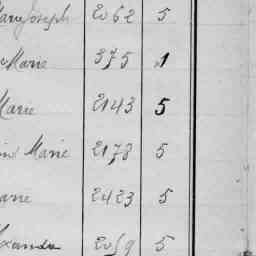 Mary Joseph 2062 5
Marie 375 1
Marie 2143 5
Marie 2178 5
arie 2423 5
xanda 2059 5